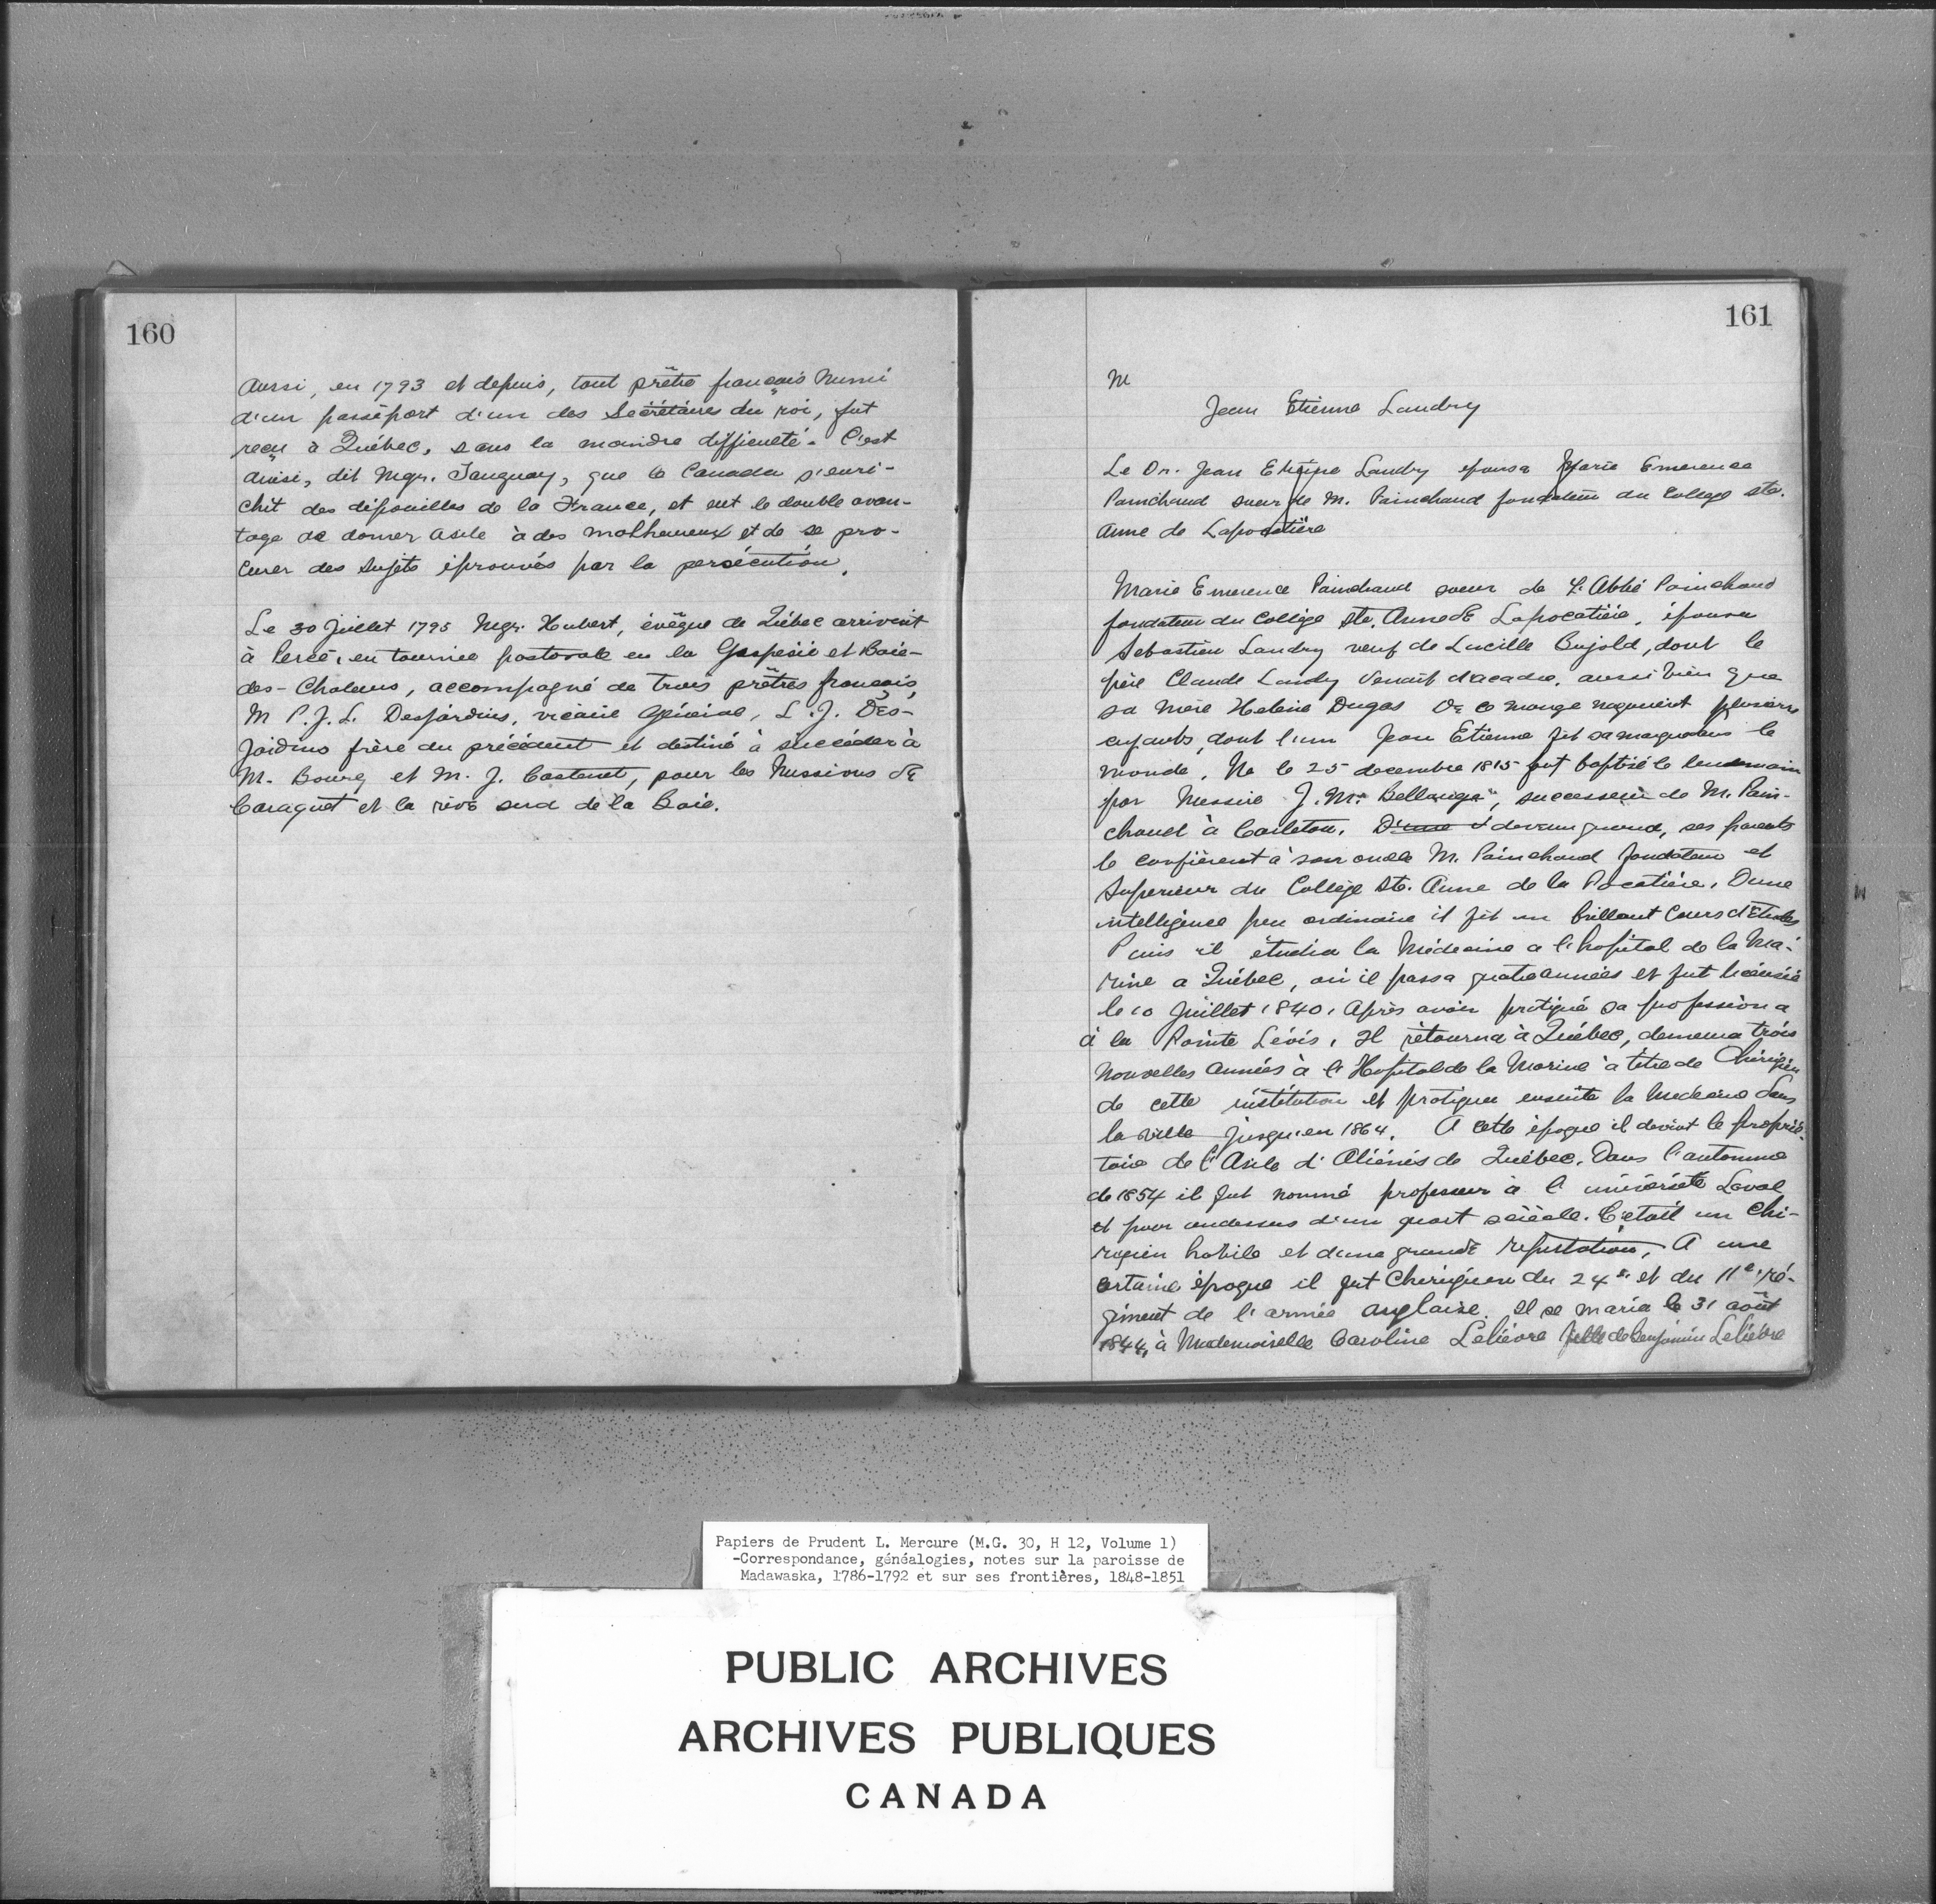 160
Aussi, en 1793 et depuis, tout prêtre français muni
d'un passéport d'un des Secrétaires du roi, fut
reçu à Québec, sans la moindre difficulté. C'est
ainsi, dit Mgr. Tanguay, que le Canada s'enri-
chit des dépouilles de la France, et eut le double avan-
tage de donner asile à des malheureux et de se pro-
curer des sujets éprouvés par la persécution.
Le 30 Juillet 1795 Mgr. Hubert, évêque de Québec arrivait
à Percé, en tournée pastorale en la Gaspésie et Baie-
des-Chaleurs, accompagné de trois prêtres français,
M P.J.L. Desjardins, vicaire Général, L.J. Des-
jardins frère du précédent et destiné à succéder à
M. Bourg et M. J. Castanet, pour les Missions de
Caraquet et la rive sud de la Baie.
161
M
Jean Etienne Landry
Le Dr. Jean Etienne Landry épousa Marie Emerence
Painchaud soeur de M. Painchaud fondateur du College Ste.
Anne de Lapocatière
Marie Emerence Painchaud soeur de L'Abbé Painchaud
fondateur du Collège Ste. Anne de Lapocatière, épousa
Sebastien Landry veuf de Lucille Bujold, dont le
père Claude Landry venait d'acadie, aussi bien que
sa mère Helene Dugas De ce mariage naquirent plusieurs
enfants, dont l'un Jean Etienne fit sa marque dans le
monde. Ne le 25 decembre 1815 fut baptisé le lendemain
par Messire J. M. Bellanger, successeur de M. Pain-
chaud à Carleton. D'une & devenu grand, ses parents
le confièrent à son oncle M. Painchaud fondateur et
Superieur du Collège Ste. Anne de la Pocatière. D'une
intelligence peu ordinaire il fit un brillant Cours d'Etudes
Puis il étudia la Médecine a l'hopital de la Ma-
rine a Québec, où il passa quatre années et fut licencié
le 10 Juillet 1840. Après avoir pratiqué sa profession a
à la Pointe Lévis. Il retourna à Québec, demeura trois
nouvelles années à l'Hopital de la Marine à titre de Chirugien
de cette institution et pratiqua ensuite la Medecine dans
la ville jusqu'en 1864. A cette époque il devint le proprié-
taire de l'Asile d'Aliénés de Québec. Dans l'automne
de 1854 il fut nommé professeur à l'université Laval
et pour audessus d'un quart siècle. C'etait un Chi-
rugien habile et d'une grande reputation. A une
certaine époque il fut Cherugien du 24e. et du 11e. ré-
giment de l'armée anglaise. Il se maria le 31 août
1844, à Mademoiselle Caroline Lelièvre fille de Benjamin Lelièvre
Papiers de Prudent L. Mercure (M.G. 30, H 12, Volume 1)
-Correspondance, généalogies, notes sur la paroisse de
Madawaska, 1786-1792 et sur ses frontières, 1848-1851
PUBLIC ARCHIVES
ARCHIVES PUBLIQUES
CANADA